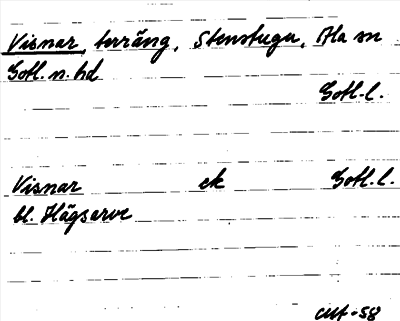 Visnar, terräng, Stenstugu, Ala sn
Gotl. n. hd
Gotl. l.
Visnar ek Gotl. l.
bl. Hägsarve